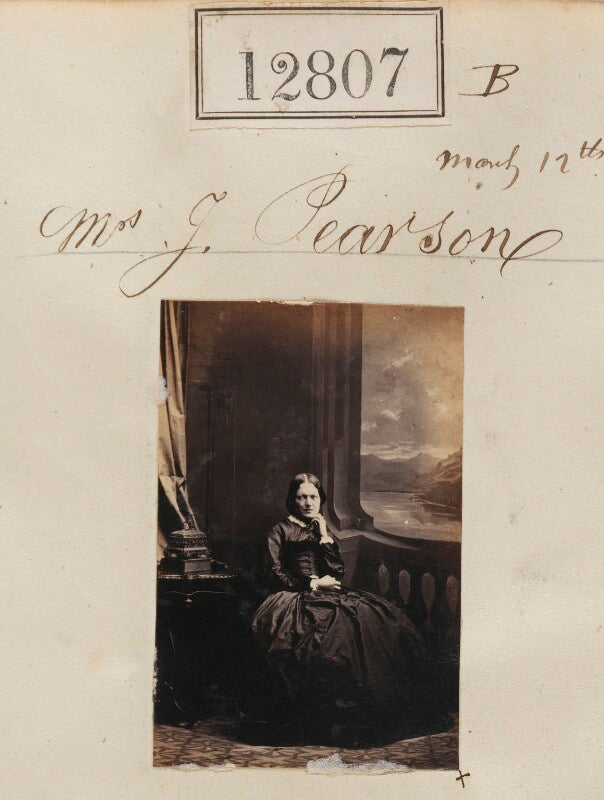 12807 B
March 12th
Mrs J. Pearson